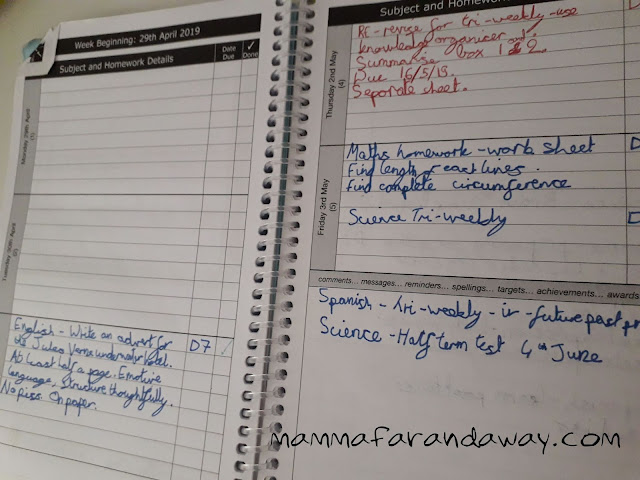 Week Beginning: 29th April 2019
Subject and Homework Details
Date Due
✓ Done
Monday 29th April
(1)
Tuesday 30th April
English - Write an advert for
the Jules Verne underwater hotel.
At least half a page. Emotive
language. Structure thoughtfully.
On paper.
D7
Subject and Homew
Thursday 2nd May
(4)
RE - revise for tri-weekly - use
knowledge organiser
Summarise box 1 and 2
Due 16/5/19.
Seperate sheet.
Friday 3rd May
(5)
Maths homework - work sheet
Find length of each lines.
Find complete circumference
Science Tri-weekly
comments... messages... reminders... spellings... targets... achievements... awards
Spanish - tri-weekly - ir - future past pr
Science - Half term test 4th June
mammafarandaway.com